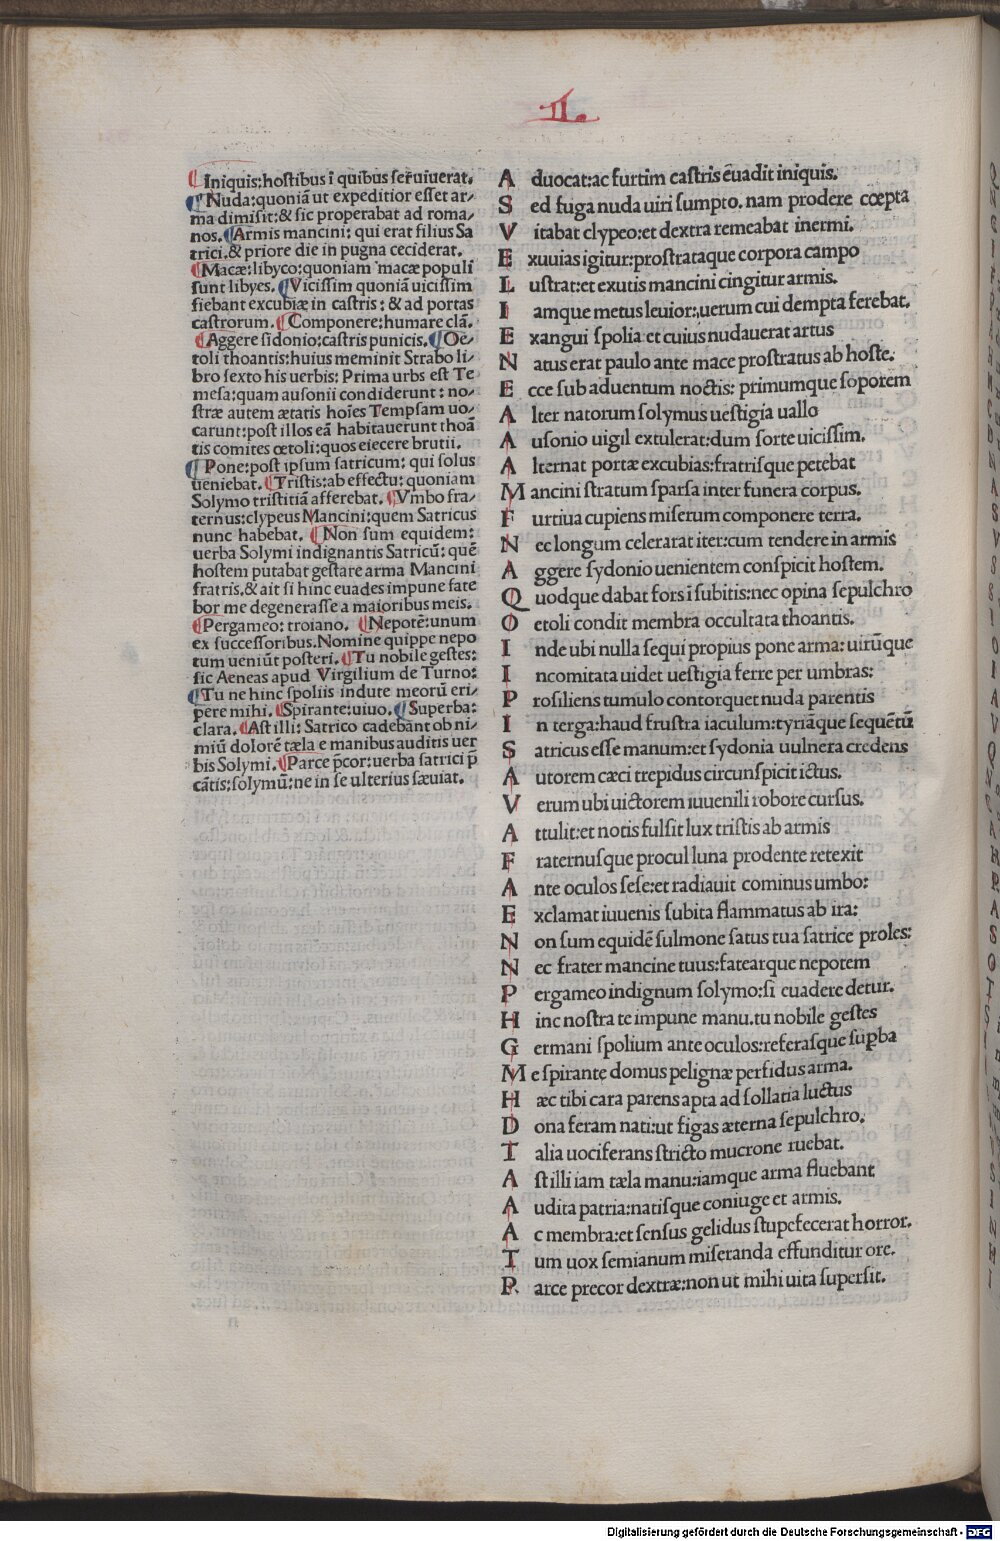 II.
Iniquis:hostibus ī quibus ser̄uiuerat.
Nuda:quoniā ut expeditior esset ar/
ma dimisit:& sic properabat ad roma/
nos. Armis mancini: qui erat filius Sa
trici,& priore die in pugna ceciderat.
Macæ:libyco:quoniam macæ populi
sunt libyes. Vicissim quoniā uicissim
fiebant excubiæ in castris: & ad portas
castrorum. Componere:humare clā.
Aggere sidonio:castris punicis. Oe/
toli thoantis:huius meminit Strabo li/
bro sexto his uerbis: Prima urbs est Te
mesa:quam ausonii condiderunt: no/
stræ autem ætatis hoīes Tempsam uo/
carunt:post illos eā habitauerunt thoā
tis comites œtoli:quos eiecere brutii.
Pone:post ipsum satricum: qui solus
ueniebat. Tristis:ab effectu: quoniam
Solymo tristitiā afferebat. Vmbo fra/
ternus:clypeus Mancini:quem Satricus
nunc habebat. Non sum equidem:
uerba Solymi indignantis Satricū: quē
hostem putabat gestare arma Mancini
fratris,& ait si hinc euades impune fate
bor me degenerasse a maioribus meis.
Pergameo: troiano. Nepotē:unum
ex successoribus.Nomine quippe nepo
tum ueniūt posteri. Tu nobile gestes:
sic Aeneas apud Virgilium de Turno:
Tu ne hinc spoliis indute meorū eri/
pere mihi. Spirante:uiuo. Superba:
clara. Ast illi: Satrico cadebānt ob ni/
miū dolorē tæla e manibus auditis uer
bis Solymi. Parce p̄cor:uerba satrici p̄
cātis:solymū:ne in se ulterius sæuiat.
A duocat:ac furtim castris ēuadit iniquis.
S ed fuga nuda uiri sumpto. nam prodere cœpta
V itabat clypeo:et dextra remeabat inermi.
E xuuias igitur:prostrataque corpora campo
L ustrat:et exutis mancini cingitur armis.
I amque metus leuior:,uerum cui dempta ferebat.
E xangui spolia et cuius nudauerat artus
N atus erat paulo ante mace prostratus ab hoste.
E cce sub aduentum noctis: primumque soporem
A lter natorum solymus uestigia uallo
A usonio uigil extulerat:dum sorte uicissim.
A lternat portæ excubias:fratrisque petebat
M ancini stratum sparsa inter funera corpus.
F urtiua cupiens miserum componere terra.
N ec longum celerarat iter:cum tendere in armis
A ggere sydonio uenientem conspicit hostem.
Q uodque dabat fors ī subitis:nec opina sepulchro
O etoli condit membra occultata thoantis.
I nde ubi nulla sequi propius pone arma: uirūque
I ncomitata uidet uestigia ferre per umbras:
P rosiliens tumulo contorquet nuda parentis
I n terga:haud frustra iaculum:tyriāque sequētū
S atricus esse manum:et sydonia uulnera credens
A utorem cæci trepidus circunspicit ictus.
V erum ubi uictorem iuuenili robore cursus.
A ttulit:et notis fulsit lux tristis ab armis
F raternusque procul luna prodente retexit
A nte oculos sese:et radiauit cominus umbo:
E xclamat iuuenis subita flammatus ab ira:
N on sum equidē sulmone satus tua satrice proles:
N ec frater mancine tuus:fatearque nepotem
P ergameo indignum solymo:si euadere detur.
H inc nostra te impune manu.tu nobile gestes
G ermani spolium ante oculos:referasque supba
M e spirante domus pelignæ perfidus arma.
H æc tibi cara parens apta ad sollatia luctus
D ona feram nati:ut figas æterna sepulchro.
T alia uociferans stricto mucrone ruebat.
A st illi iam tæla manu:iamque arma fluebant
A udita patria:natisque coniuge et armis.
A c membra:et sensus gelidus stupefecerat horror.
T um uox semianum miseranda effunditur ore.
P arce precor dextræ:non ut mihi uita supersit.
Digitalisierung gefördert durch die Deutsche Forschungsgemeinschaft - DFG